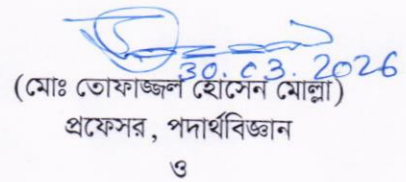 30.03.2026
(মোঃ তোফাজ্জল হোসেন মোল্লা)
প্রফেসর, পদার্থবিজ্ঞান
ও